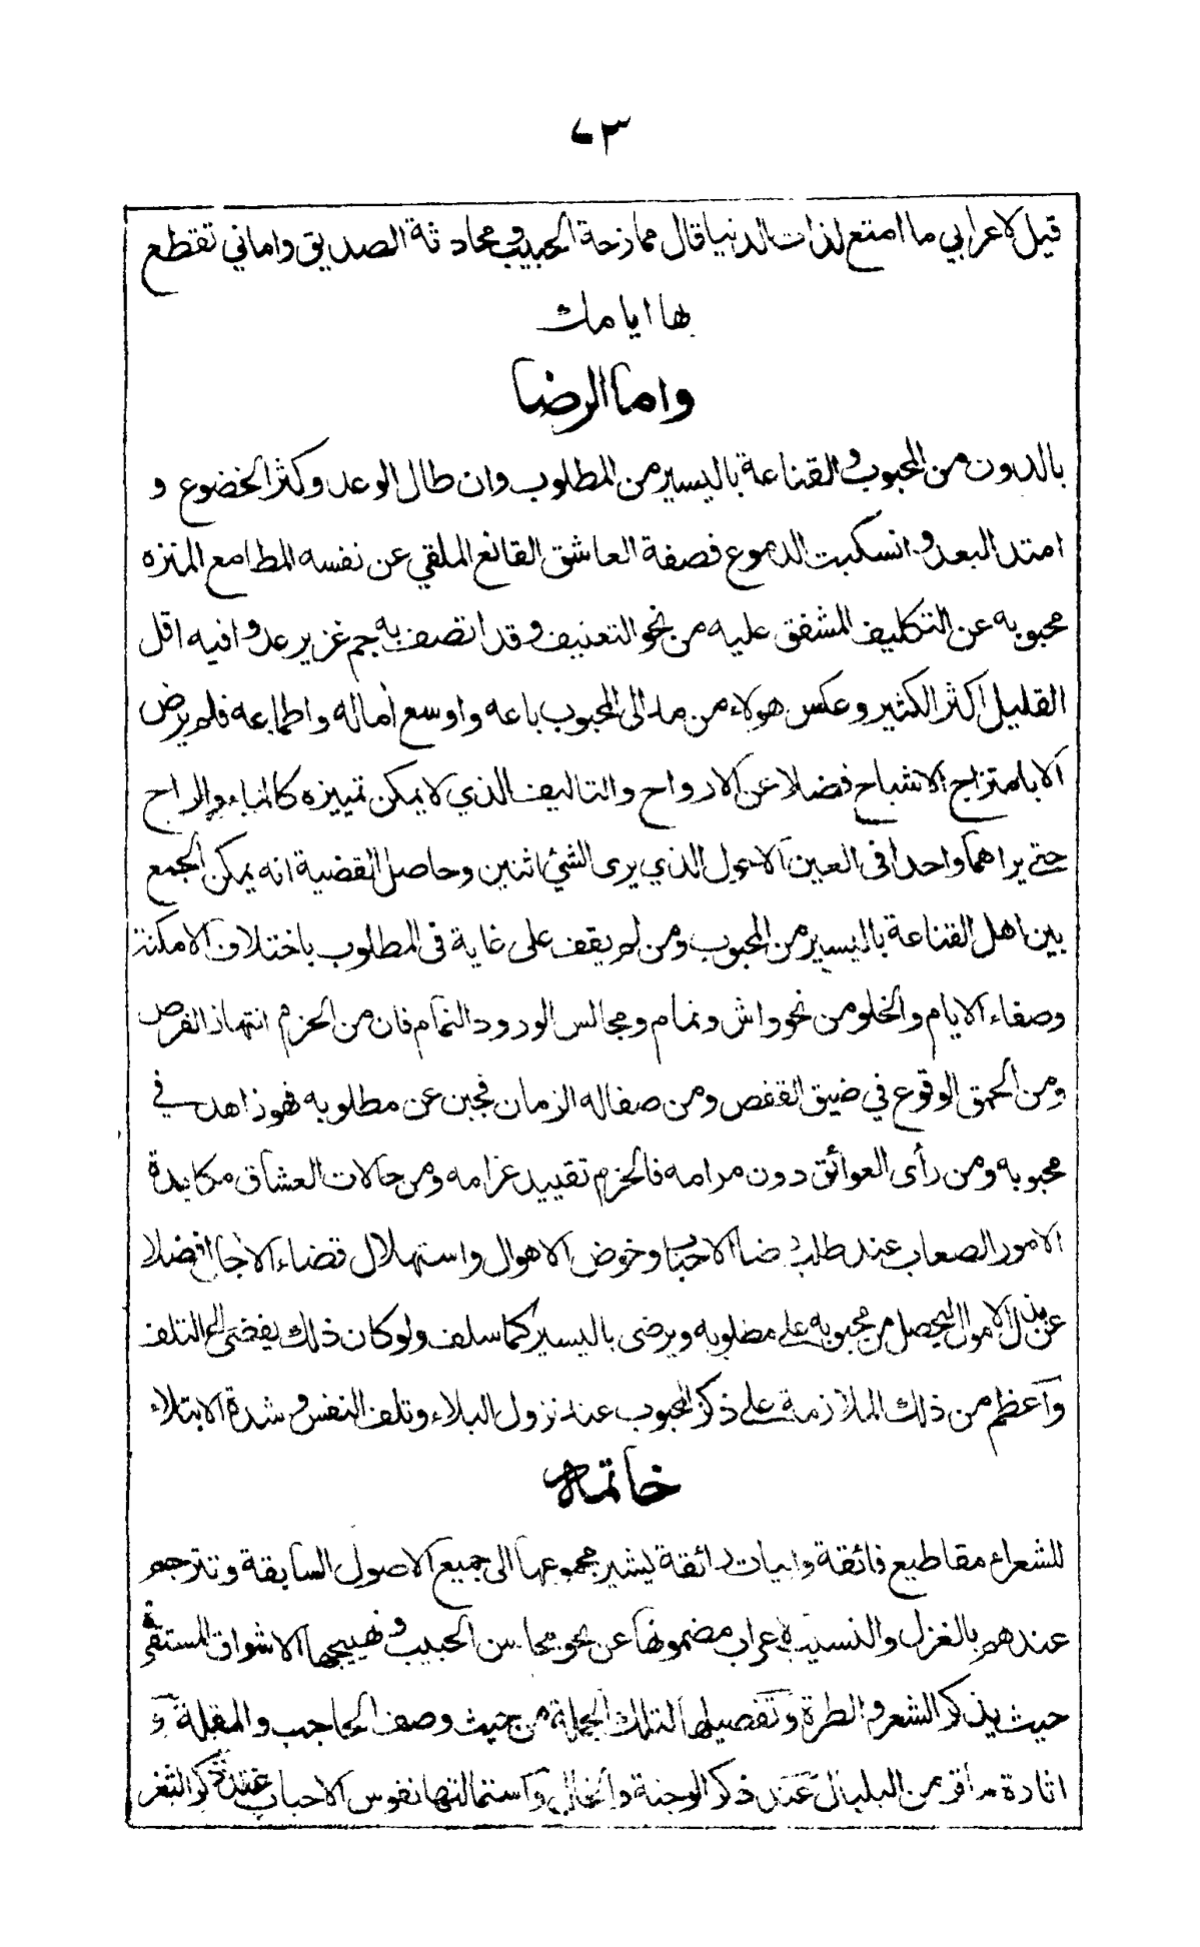 ٧٣
قيل لاعرابي ما امتع لذات الدنيا قال ممازحة الحبيب ومحادثة الصديق واماني تقطع
بها ايامك
واما الرضا
بالدون من المحبوب والقناعة باليسير من المطلوب وان طال الوعد وكثر الخضوع و
امتد البعد وانسكبت الدموع فصفة العاشق القانع الملقي عن نفسه المطامع المنزه
محبوبه عن التكليف المشفق عليه من نحو التعنيف وقد اتصف به جم غزير عدوا فيه اقل
القليل اكثر الكثير وعكس هولاء من مد الى المحبوب باعه واوسع أماله واطماعه فلم يرض
الا بامتزاج الاشباح فضلا عن الارواح والتاليف الذي لا يمكن تمييزه كالماء والراح
حتى يراهما واحدا في العين الاحول الذي يرى الشئ اثنين وحاصل القضية انه يمكن الجمع
بين اهل القناعة باليسير من المحبوب ومن لم يقف على غاية في المطلوب باختلاف الامكنة
وصفاء الايام والخلو من نحو واش ونمام ومجالس الورود التمام فان من الحزم انتهاز الفرص
ومن الحمق الوقوع في ضيق القفص ومن صفا له الزمان فجبن عن مطلوبه فهو زاهد في
محبوبه ومن رأى العوائق دون مرامه فالحزم تقييد غرامه ومن حالات العشاق مكابدة
الامور الصعاب عند طلب رضا الاحباب وخوض الاهوال واستهلال قضاء الاجال فضلا
عن بذل الاموال ليحصل من محبوبه على مطلوبه ويرضى باليسير كما سلف ولو كان ذلك يفضى الى التلف
وأعظم من ذلك الملازمة على ذكر المحبوب عند نزول البلاء وتلف النفس وشدة الابتلاء
خاتمة
للشعراء مقاطيع فائقة وابيات رائقة يشير مجموعها الى جميع الاصول السابقة وتترجم
عندهم بالغزل والنسيب لاعراب مضمونها عن نحو محاسن الحبيب وتهييجها الاشواق المستقرة
حيث يذكر الشعر والطرة وتفصيلها لتلك الجملة من حيث وصف الحاجب والمقلة و
اثارة ما قر من البلبال عند ذكر الوجنة والخال واستمالتها نفوس الاحباب عند ذكر الثغر